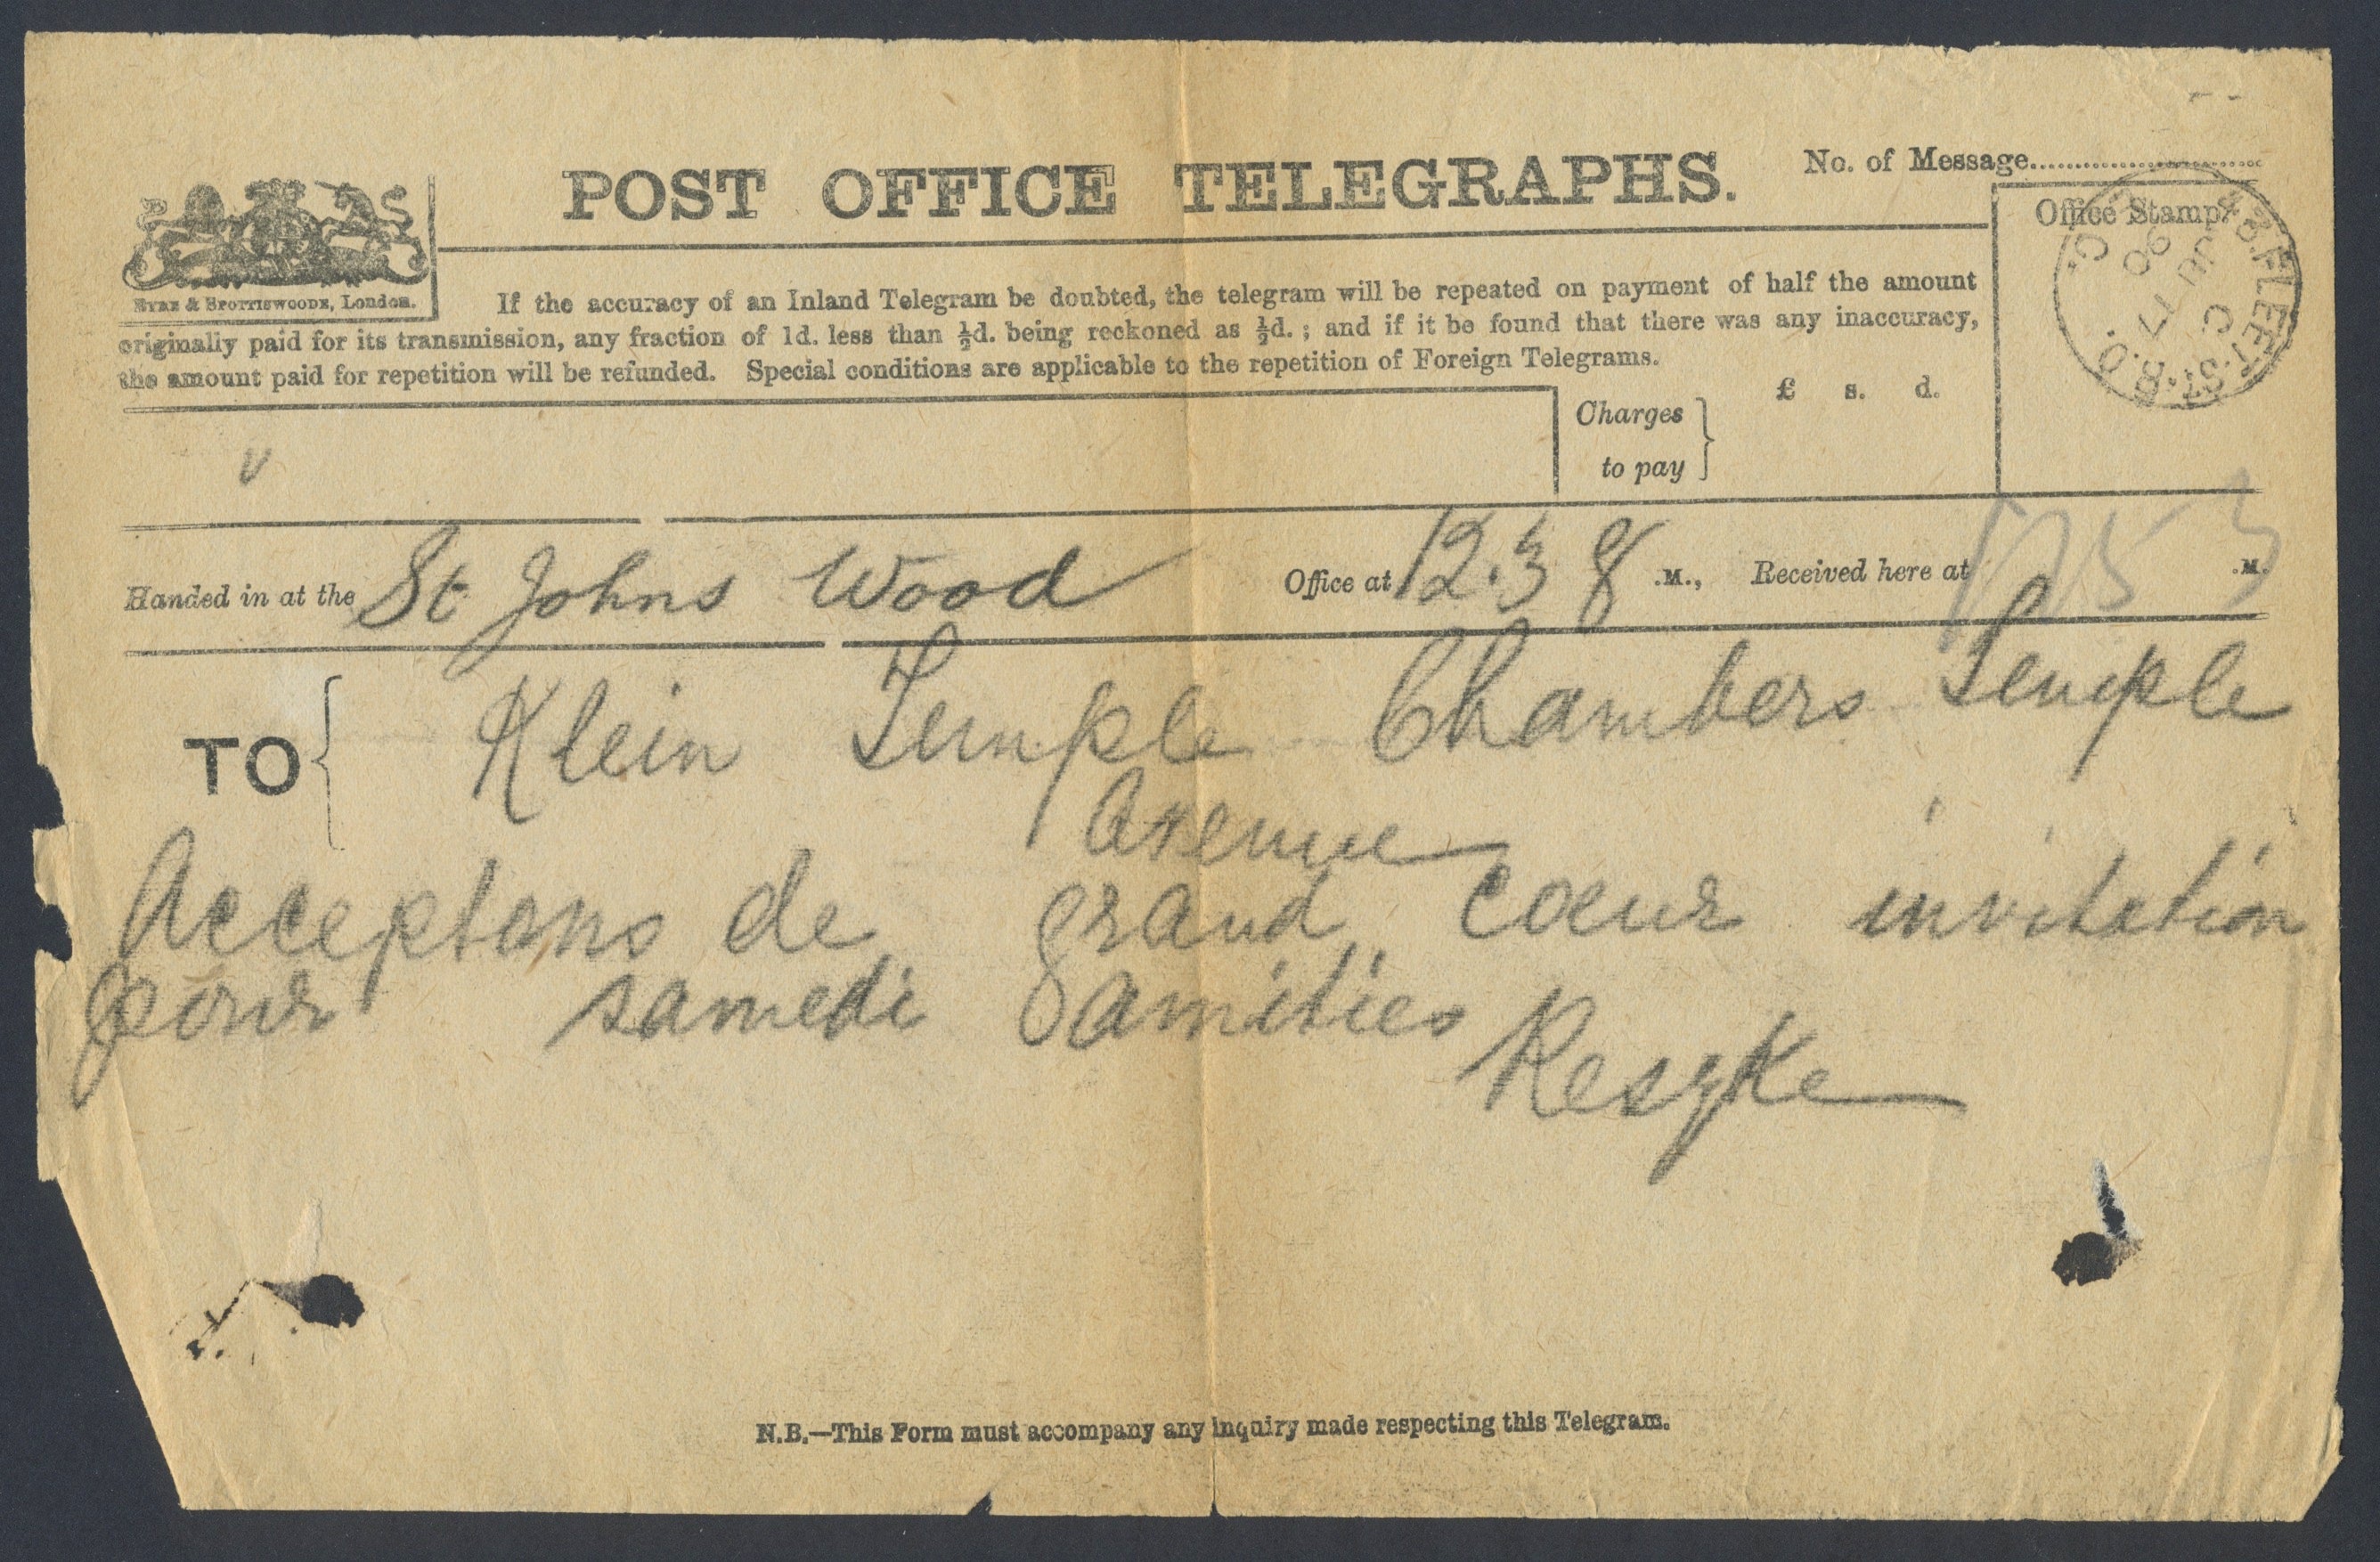 POST OFFICE TELEGRAPHS.
No. of Message
Office Stamp.
FLEET. ST. B.O.
C
JU 17
90
EYRE & SPOTTISWOODE, London.
If the accuracy of an Inland Telegram be doubted, the telegram will be repeated on payment of half the amount
originally paid for its transmission, any fraction of 1d. less than ½d. being reckoned as ½d. ; and if it be found that there was any inaccuracy,
the amount paid for repetition will be refunded. Special conditions are applicable to the repetition of Foreign Telegrams.
Charges to pay } £ s. d.
Handed in at the St Johns Wood Office at 12.38 .M., Received here at .M.
TO { Klein Temple Chambers Temple
Avenue
Acceptons de grand coeur invitation
pour samedi amities
Reszke
N.B.—This Form must accompany any inquiry made respecting this Telegram.